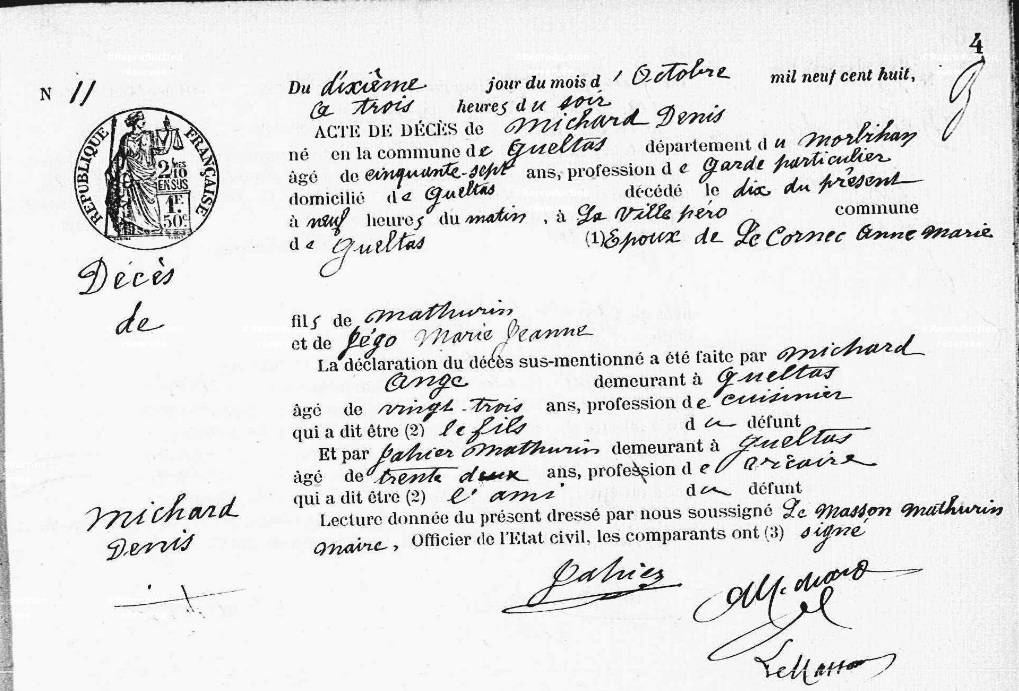 4
N 11
Du dixième jour du mois d'Octobre mil neuf cent huit,
à trois heures du soir
ACTE DE DÉCÈS de Michard Denis
né en la commune de Gueltas département du Morbihan
âgé de cinquante-sept ans, profession de Garde particulier
domicilié de Gueltas décédé le dix du présent
à neuf heures du matin, à La Ville péro commune
de Gueltas (1) Epoux de Le Cornec Anne Marie
RÉPUBLIQUE FRANÇAISE
2/10 EN SUS
1F. 50c
Décès
de
Michard
Denis
fils de Mathurin
et de Jégo Marie Jeanne
La déclaration du décès sus-mentionné a été faite par Michard
Ange demeurant à Gueltas
âgé de vingt-trois ans, profession de cuisinier
qui a dit être (2) le fils du défunt
Et par Jahier Mathurin demeurant à Gueltas
âgé de trente deux ans, profession de
qui a dit être (2) l'ami du défunt
Lecture donnée du présent dressé par nous soussigné Le Masson Mathurin
Maire, Officier de l'Etat civil, les comparants ont (3) signé
Jahier
Michard
LeMasson